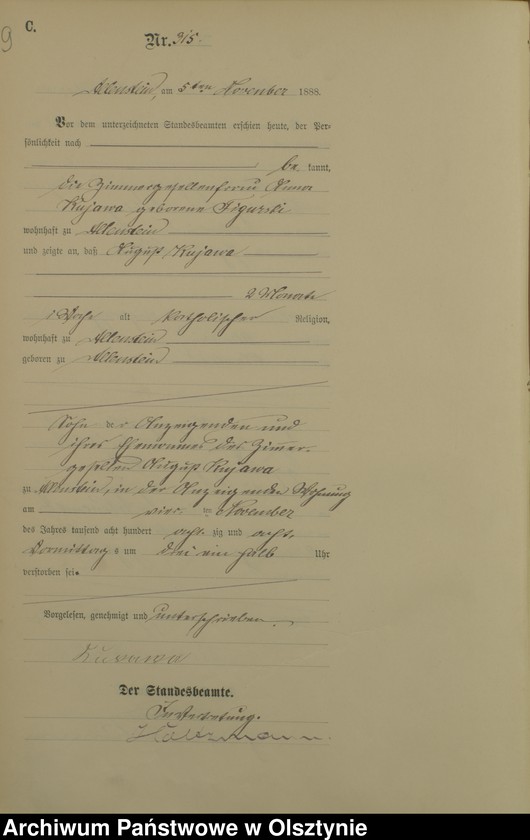 C.
9
Nr. 315.
Allenstein, am 5ten November 1888.
Vor dem unterzeichneten Standesbeamten erschien heute, der Per-
sönlichkeit nach
be kannt,
die Zimmergesellenfrau Anna
Kujawa geborene Figurski
wohnhaft zu Allenstein
und zeigte an, daß August Kujawa
2 Monate
1 Woche alt katholischer Religion,
wohnhaft zu Allenstein
geboren zu Allenstein
Sohn der Anzeigenden und
ihres Ehemannes des Zimmer-
gesellen August Kujawa
zu Allenstein, in der Anzeigenden Wohnung
am vier ten November
des Jahres tausend acht hundert acht zig und acht
Vormittag s um drei ein halb Uhr
verstorben sei.
Vorgelesen, genehmigt und unterschrieben.
Kujawa
Der Standesbeamte.
In Vertretung.
Archiwum Państwowe w Olsztynie